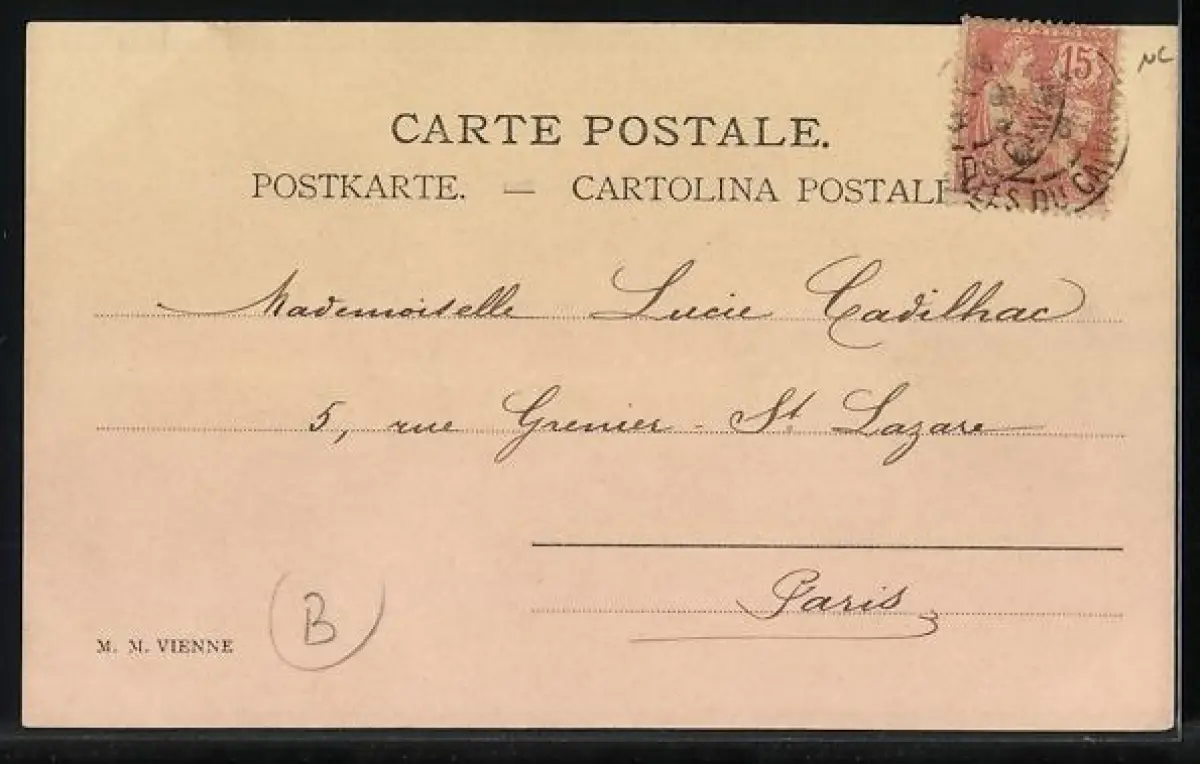 POSTES
15
NC
CARTE POSTALE.
POSTKARTE. — CARTOLINA POSTALE
Mademoiselle Lucie Cadilhac
5, rue Grenier - St. Lazare
Paris
M. M. VIENNE
B